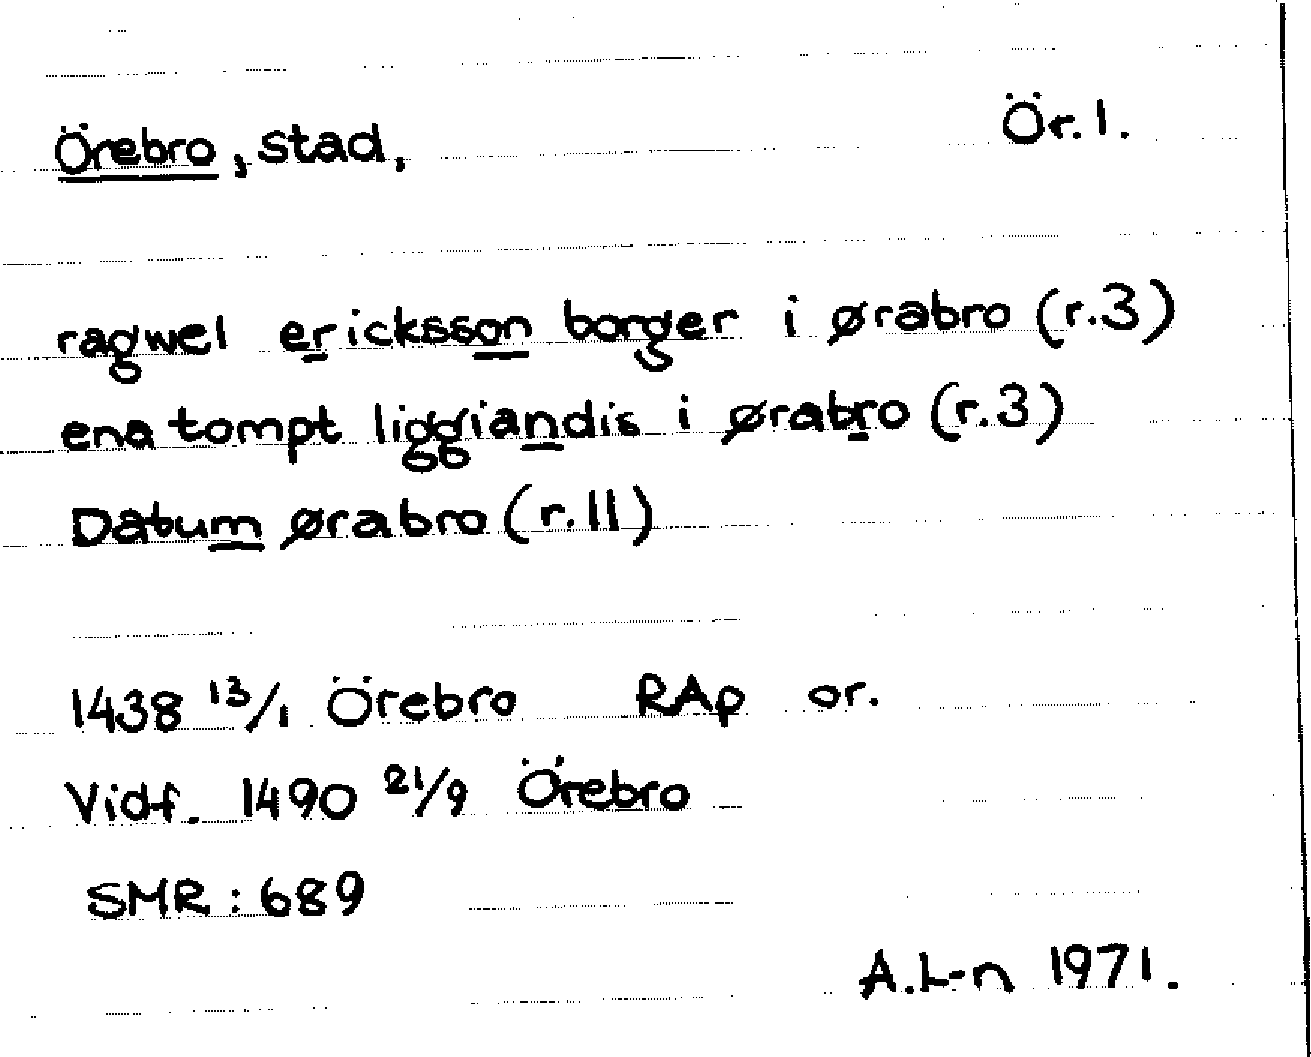 Örebro, stad, Ör. 1.
ragwel ericksson borger i ørabro (r.3)
ena tompt liggiandis i ørabro (r.3)
Datum ørabro (r.11)
1438 13/1 Örebro RAp or.
Vidf. 1490 21/9 Örebro
SMR: 689
A.L-n 1971.